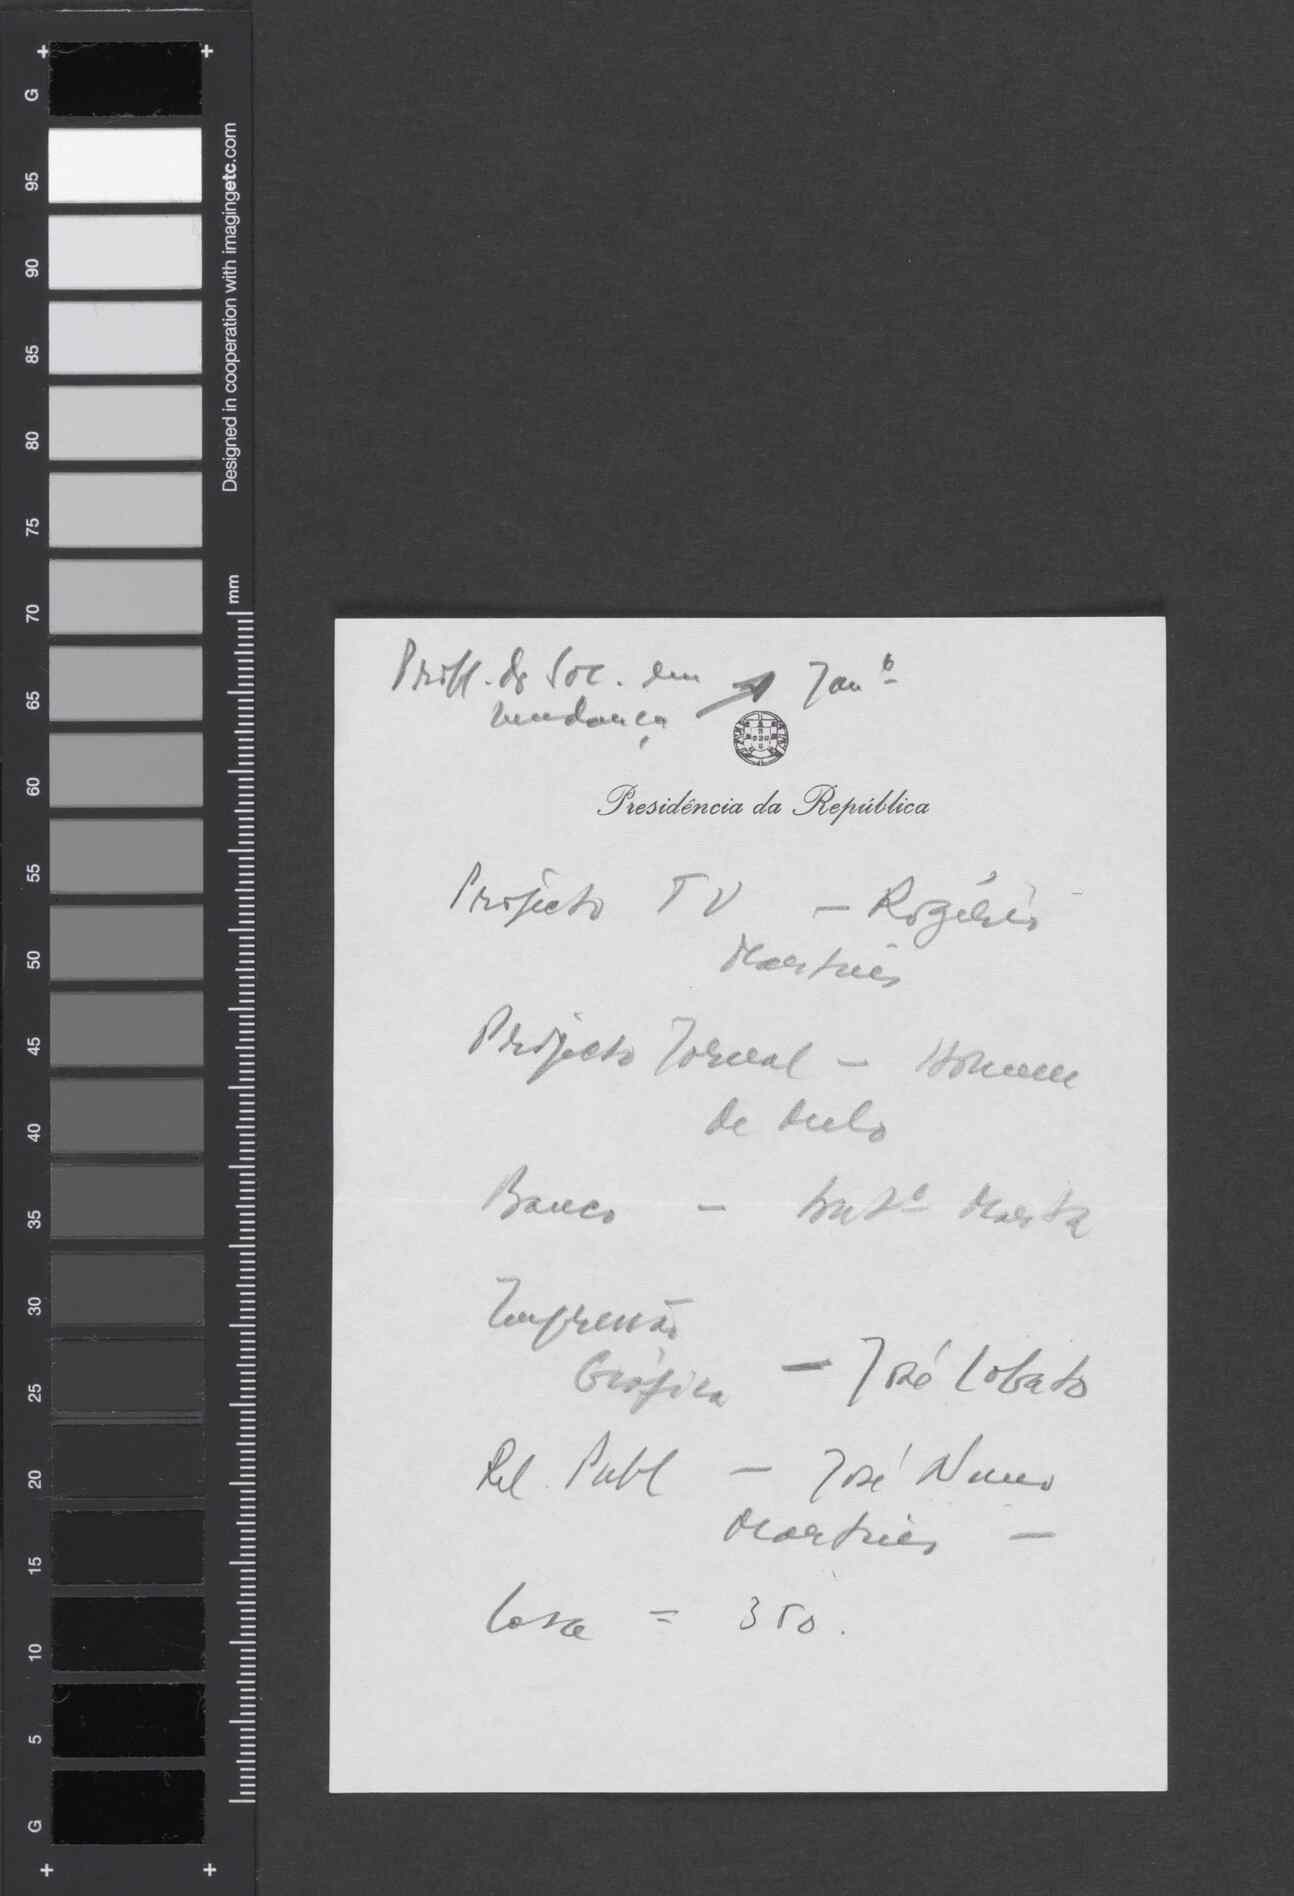 Proff. de Soc. em → Janº
mudança
Presidência da República
Projecto TV — Rogério
Martins
Projecto Jornal — Homem
de Melo
Banco — Marta
Impressão
Gráfica — José Lobato
Rel. Publ — José Nuno
Martins —
Casa = 350.
G
95
90
85
80
75
70
65
60
55
50
45
40
35
30
25
20
15
10
5
G
Designed in cooperation with imagingetc.com
mm